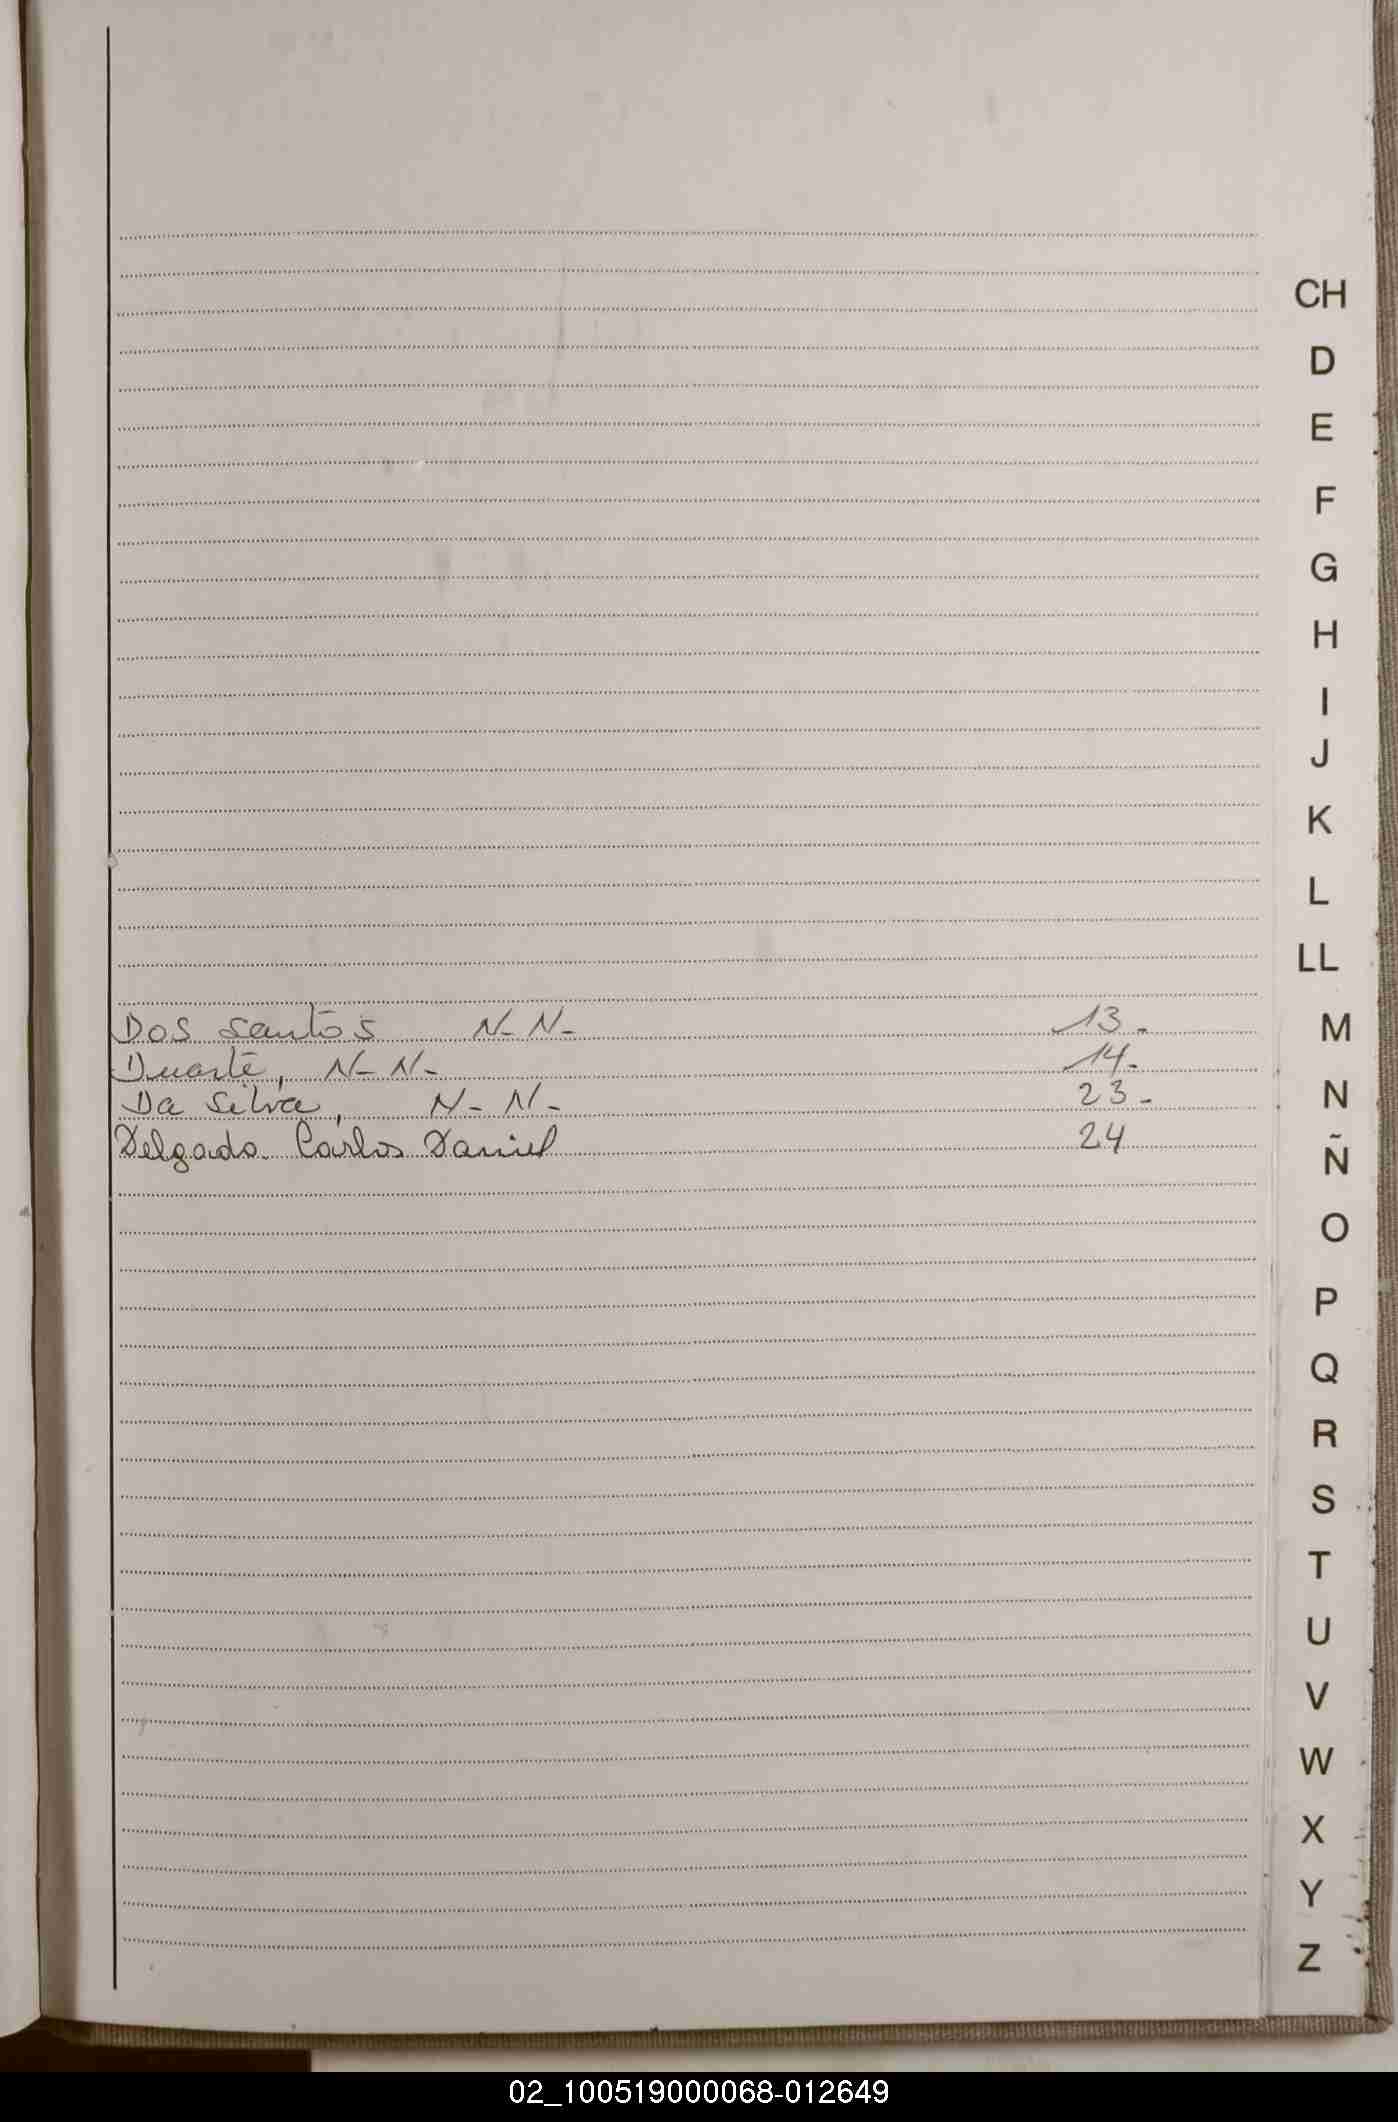 CH
D
E
F
G
H
I
J
K
L
LL
Dos santos N-N- 13-
M
Duarte, N-N- 14-
Da Silva, N-N- 23-
N
Delgado Carlos Daniel 24
Ñ
O
P
Q
R
S
T
U
V
W
X
Y
Z
02_100519000068-012649